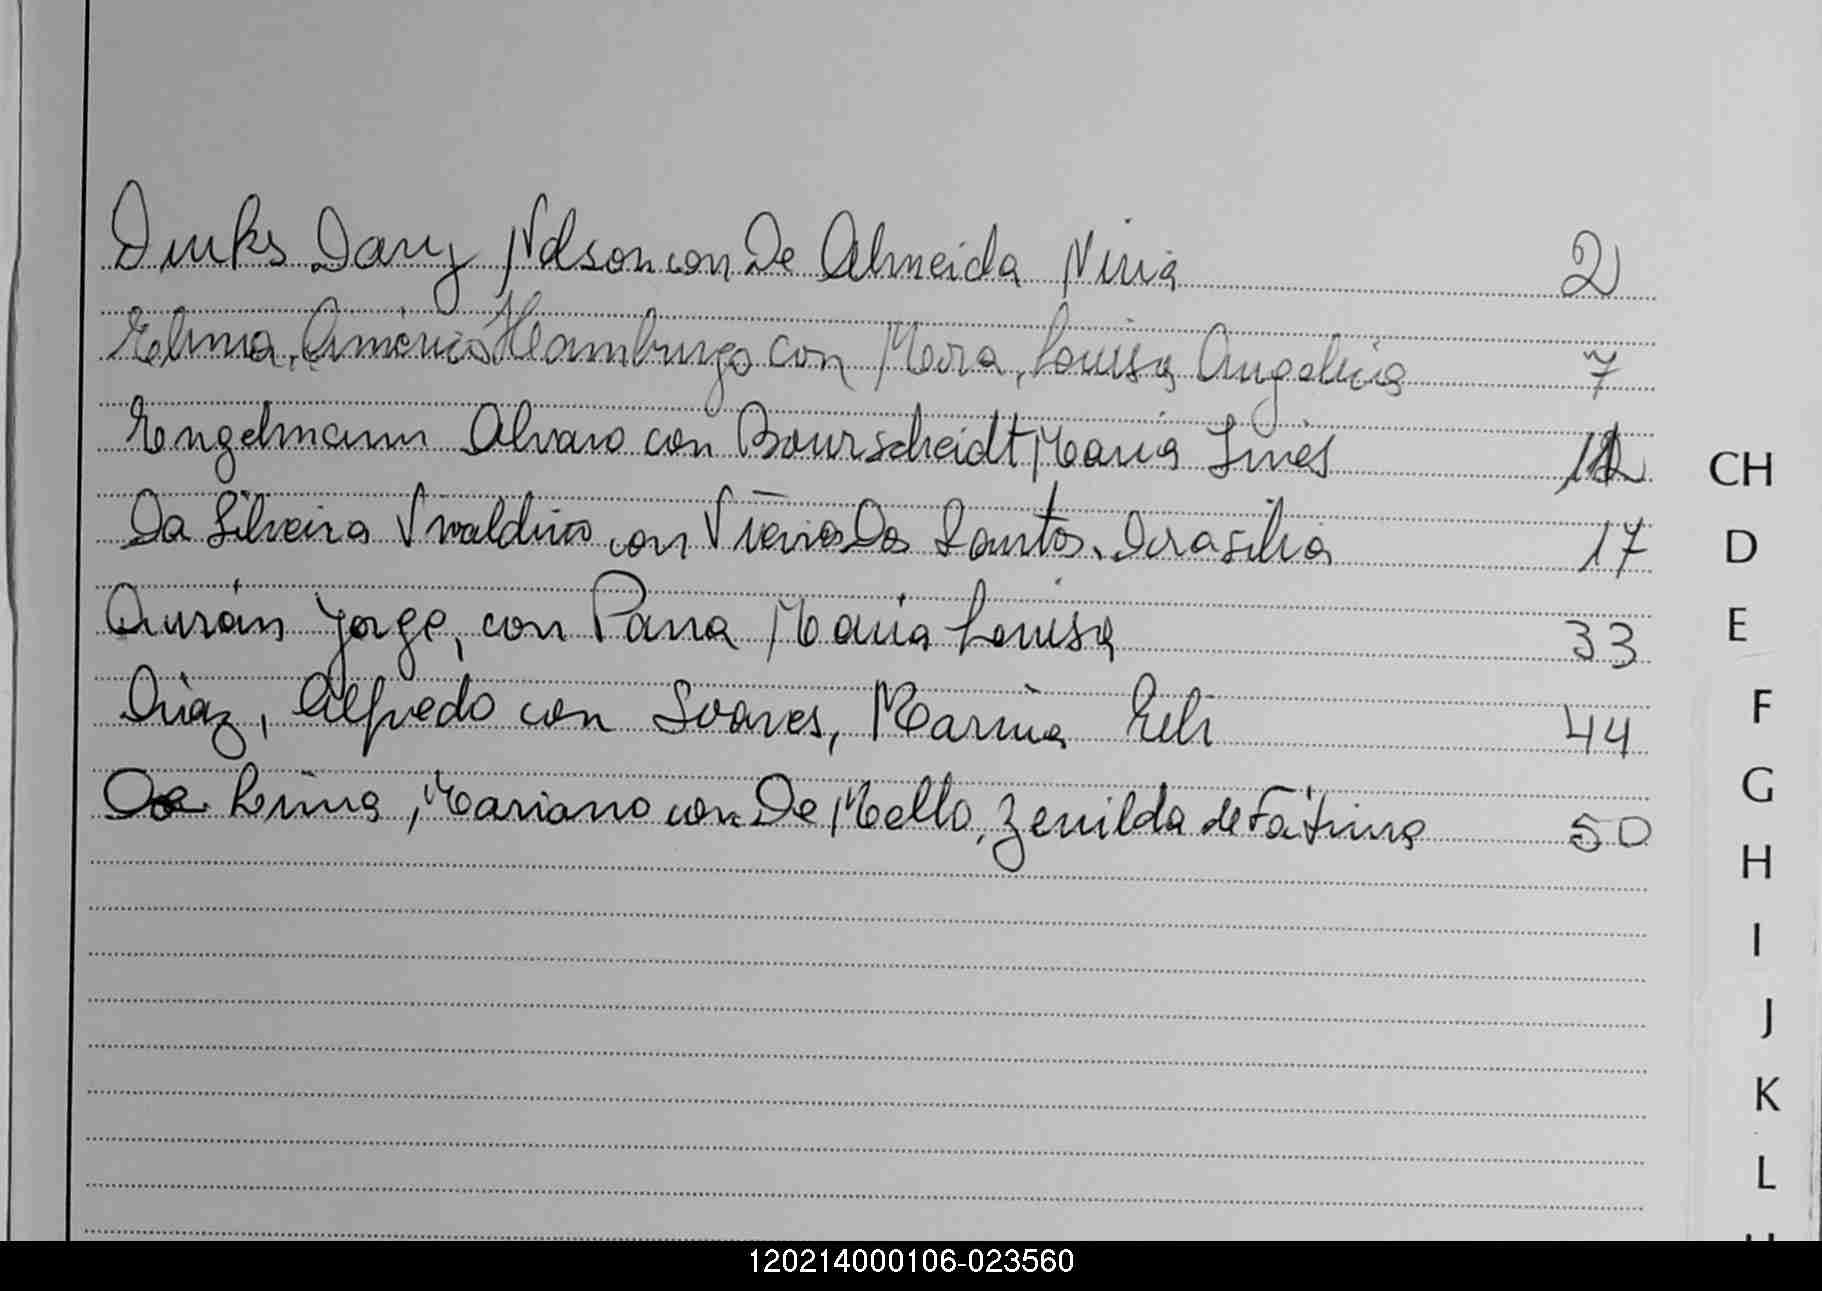 Dirks Dary Nelson con De Almeida Niria 2
Elma, Américo Hamburgo con Meira, Louisa Angelica 7
Engelmann Alvaro con Bourscheidt Maria Inés 12
Da Silveira Vivaldino con Vieira Dos Santos, Dorasilia 17
Durán Jorge, con Parra Maria Louisa 33
Diaz, Alfredo con Soares, Marina Eli 44
De Lima, Mariano con De Mello, Zenilda de Fátima 50
CH
D
E
F
G
H
I
J
K
L
120214000106-023560